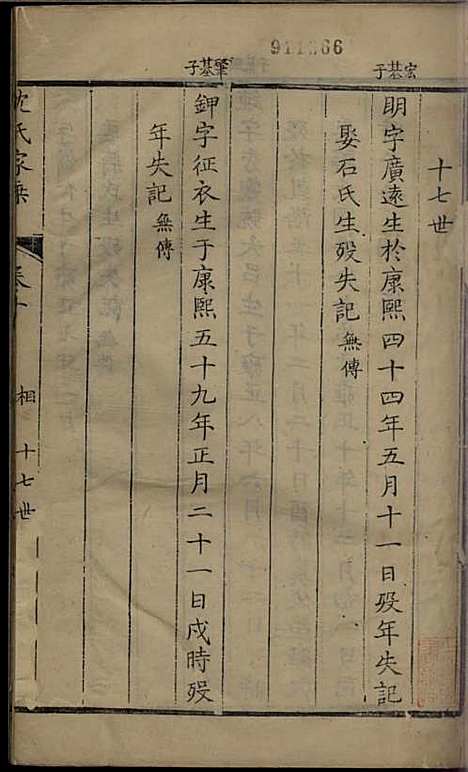 911266
十七世
宏基子
明字廣遠生於康熙四十四年五月十一日歿年失記
娶石氏生歿失記無傳
肇基子
鉀字征衣生于康熙五十九年正月二十一日戌時歿
年失記無傳
沈氏家乘
卷十
相
十七世